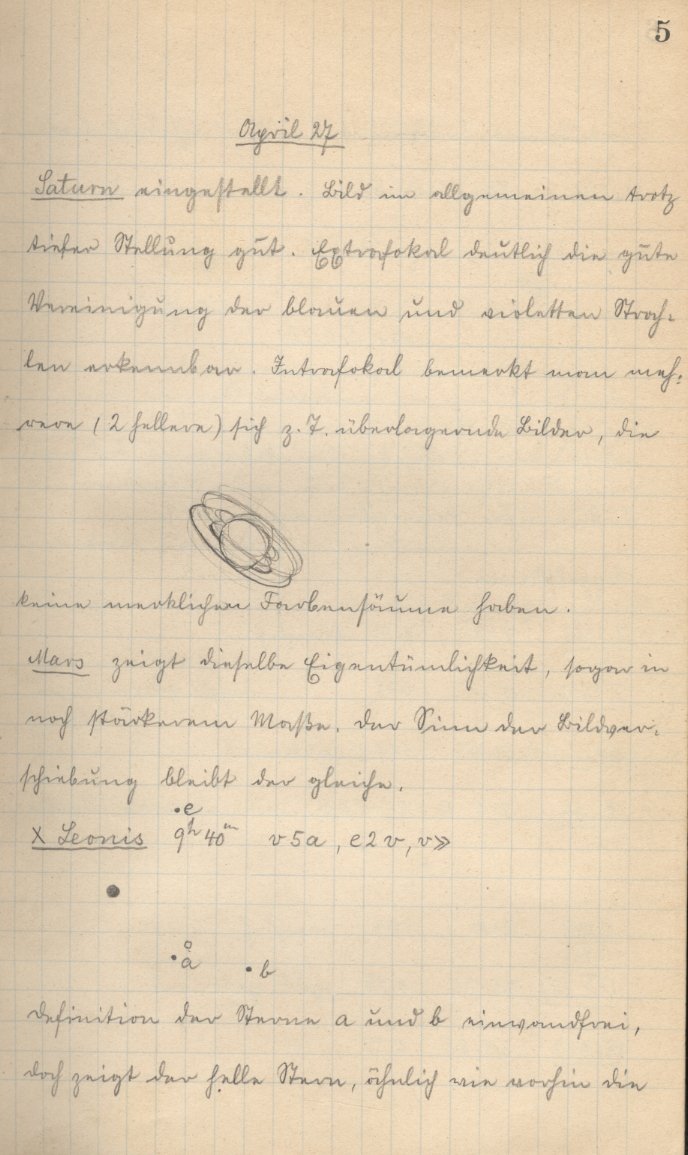 5
April 27
Saturn eingestellt. Bild im allgemeinen trotz
tiefer Stellung gut. Extrafokal deutlich die gute
Vereinigung der blauen und violetten Strah-
len erkennbar. Intrafokal bemerkt man meh-
rere (2 hellere) sich z. T. überlagernde Bilder, die
keine merklichen Farbensäume haben.
Mars zeigt dieselbe Eigentümlichkeit, sogar in
noch stärkerem Maße. Der Sinn der Bildver-
schiebung bleibt der gleiche.
e
X Leonis 9h 40m v 5 a, e 2 v, v»
a
b
Definition der Sterne a und b einwandfrei,
doch zeigt der helle Stern, ähnlich wie vorhin die